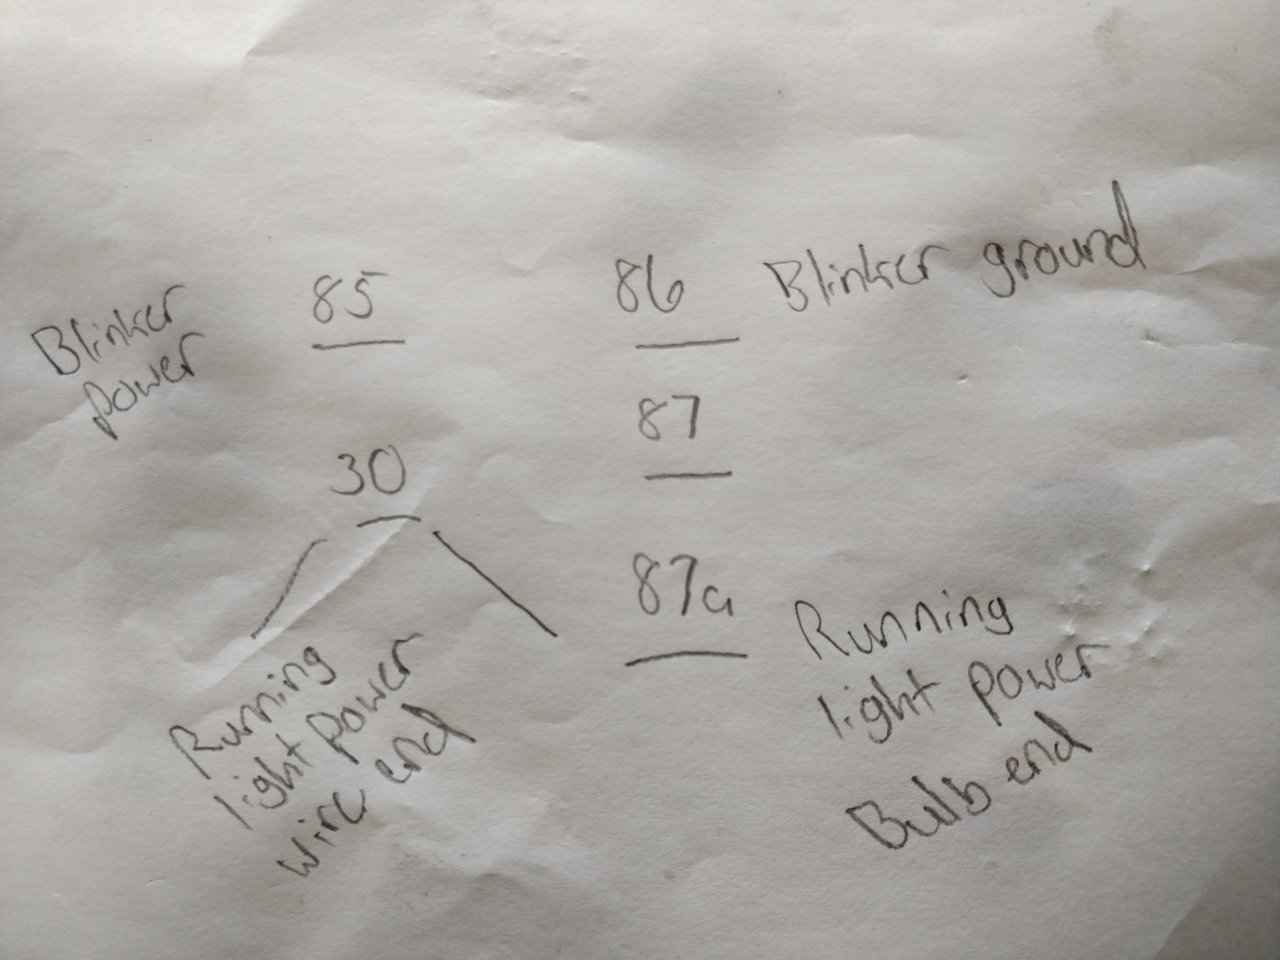 85
86 Blinker ground
Blinker
power
87
30
87a
Running
light power
wire end
Running
light power
Bulb end